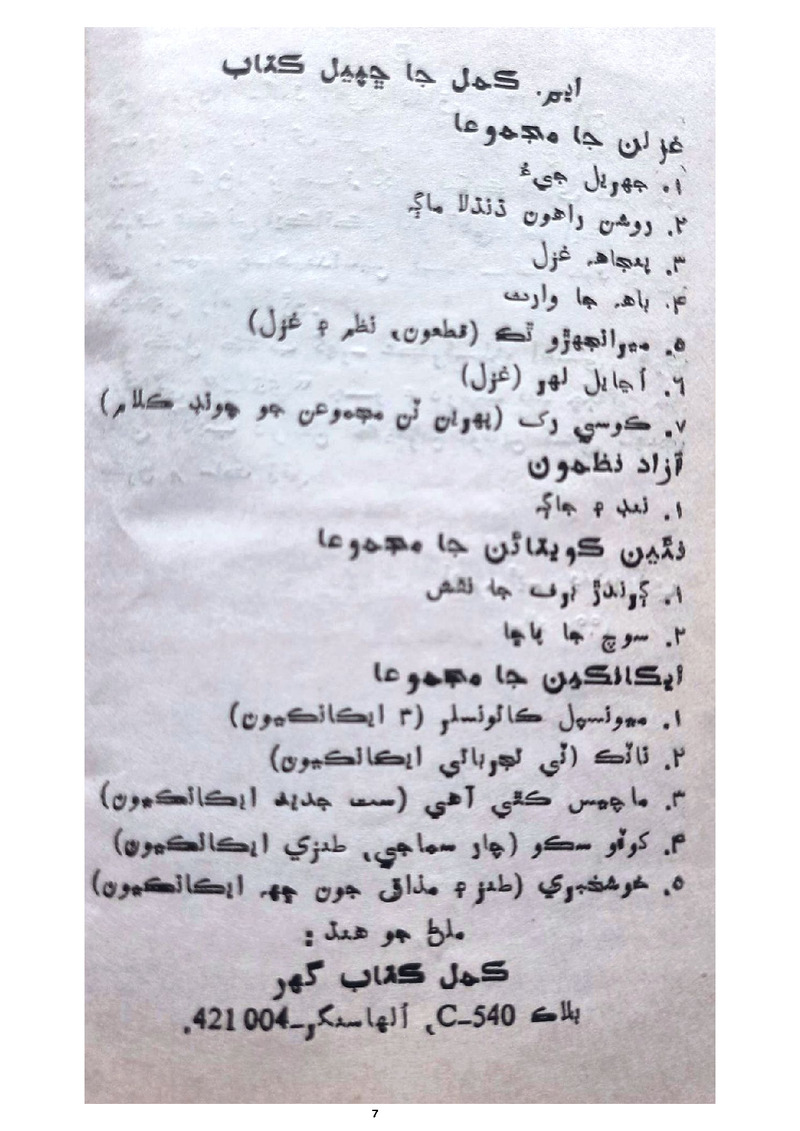 ايم. ڪمل جا ڇپيل ڪتاب
غزلن جا مجموعا
۱. جهريل جيءُ
۲. روشن راهون ڌنڌلا ماڳ
۳. پنجاهہ غزل
۴. باهہ جا وارث
۵. ميرانجهڙو ٿڪ (قطعون، نظم ۾ غزل)
۶. اڃايل لهر (غزل)
۷. ڪوسي رک (پهرين ٽن مجموعن جو چونڊ ڪلام)
آزاد نظمون
۱. ننڊ ۾ جاڳ
نئين ڪويتائن جا مجموعا
۱. ڳرندڙ برف جا نقش
۲. سوچ جا پاڇا
ايڪانڪين جا مجموعا
۱. ميونسپل ڪائونسلر (۳ ايڪانڪيون)
۲. ناٽڪ (ٽي تجرباتي ايڪانڪيون)
۳. ماچيس ڪٿي آهي (ست جديد ايڪانڪيون)
۴. کوٽو سڪو (چار سماجي، طنزي ايڪانڪيون)
۵. خوشخبري (طنز ۾ مذاق جون ڇهہ ايڪانڪيون)
ملڻ جو هنڌ :
ڪمل ڪتاب گهر
بلاڪ C-540، اُلهاسنگر-421 004.
7